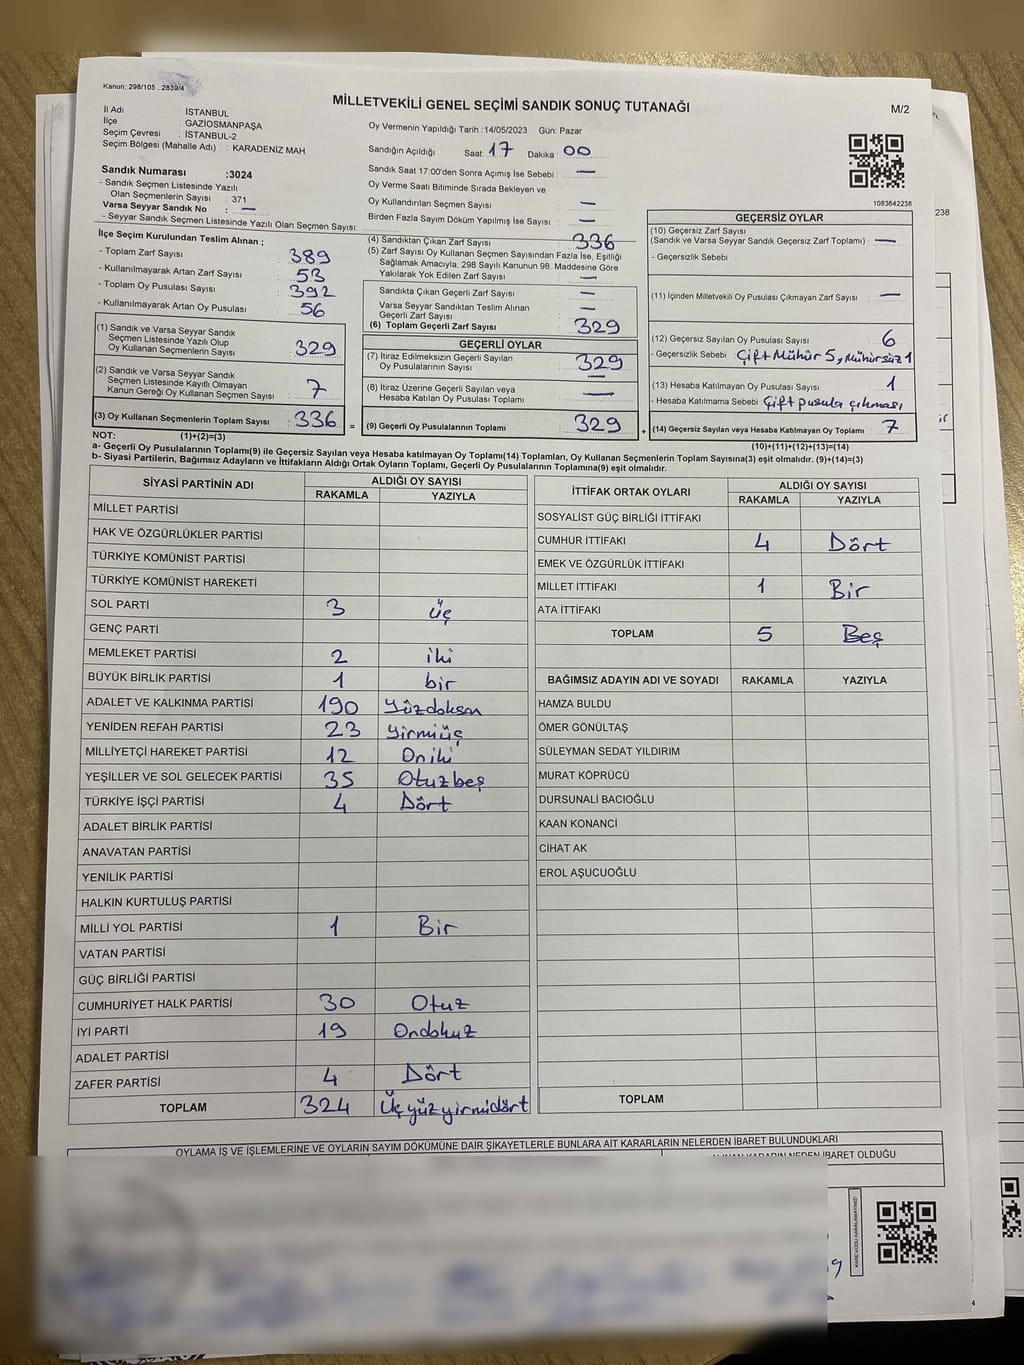 Kanun: 298/105 , 2839/4
MİLLETVEKİLİ GENEL SEÇİMİ SANDIK SONUÇ TUTANAĞI
M/2
İl Adı : İSTANBUL
İlçe : GAZİOSMANPAŞA
Seçim Çevresi : İSTANBUL-2
Seçim Bölgesi (Mahalle Adı) : KARADENİZ MAH.
Oy Vermenin Yapıldığı Tarih :14/05/2023 Gün: Pazar
Sandığın Açıldığı Saat: 17 Dakika : 00
Sandık Saat 17:00'den Sonra Açımış İse Sebebi : —
Oy Verme Saati Bitiminde Sırada Bekleyen ve
Oy Kullandırılan Seçmen Sayısı : —
Birden Fazla Sayım Döküm Yapılmış İse Sayısı : —
Sandık Numarası :3024
- Sandık Seçmen Listesinde Yazılı
Olan Seçmenlerin Sayısı : 371
Varsa Seyyar Sandık No : —
- Seyyar Sandık Seçmen Listesinde Yazılı Olan Seçmen Sayısı:
1083642238
238
İlçe Seçim Kurulundan Teslim Alınan ;
- Toplam Zarf Sayısı : 389
- Kullanılmayarak Artan Zarf Sayısı : 53
- Toplam Oy Pusulası Sayısı : 392
- Kullanılmayarak Artan Oy Pusulası : 56
(1) Sandık ve Varsa Seyyar Sandık
Seçmen Listesinde Yazılı Olup
Oy Kullanan Seçmenlerin Sayısı : 329
(2) Sandık ve Varsa Seyyar Sandık
Seçmen Listesinde Kayıtlı Olmayan
Kanun Gereği Oy Kullanan Seçmen Sayısı : 7
(3) Oy Kullanan Seçmenlerin Toplam Sayısı : 336 =
(4) Sandıktan Çıkan Zarf Sayısı : 336
(5) Zarf Sayısı Oy Kullanan Seçmen Sayısından Fazla İse, Eşitliği
Sağlamak Amacıyla; 298 Sayılı Kanunun 98. Maddesine Göre
Yakılarak Yok Edilen Zarf Sayısı : —
Sandıkta Çıkan Geçerli Zarf Sayısı : —
Varsa Seyyar Sandıktan Teslim Alınan
Geçerli Zarf Sayısı : —
(6) Toplam Geçerli Zarf Sayısı : 329
GEÇERLİ OYLAR
(7) İtiraz Edilmeksizin Geçerli Sayılan
Oy Pusulalarının Sayısı : 329
(8) İtiraz Üzerine Geçerli Sayılan veya
Hesaba Katılan Oy Pusulası Toplamı : —
(9) Geçerli Oy Pusulalarının Toplamı : 329 +
GEÇERSİZ OYLAR
(10) Geçersiz Zarf Sayısı
(Sandık ve Varsa Seyyar Sandık Geçersiz Zarf Toplamı) : —
- Geçersizlik Sebebi :
(11) İçinden Milletvekili Oy Pusulası Çıkmayan Zarf Sayısı : —
(12) Geçersiz Sayılan Oy Pusulası Sayısı : 6
- Geçersizlik Sebebi : Çift Mühür 5, Mühürsüz 1
(13) Hesaba Katılmayan Oy Pusulası Sayısı : 1
- Hesaba Katılmama Sebebi : Çift pusula çıkması
(14) Geçersiz Sayılan veya Hesaba Katılmayan Oy Toplamı : 7
NOT: (1)+(2)=(3)
(10)+(11)+(12)+(13)=(14)
a- Geçerli Oy Pusulalarının Toplamı(9) ile Geçersiz Sayılan veya Hesaba katılmayan Oy Toplamı(14) Toplamları, Oy Kullanan Seçmenlerin Toplam Sayısına(3) eşit olmalıdır. (9)+(14)=(3)
b- Siyasi Partilerin, Bağımsız Adayların ve İttifakların Aldığı Ortak Oyların Toplamı, Geçerli Oy Pusulalarının Toplamına(9) eşit olmalıdır.
SİYASİ PARTİNİN ADI ALDIĞI OY SAYISI
RAKAMLA YAZIYLA
MİLLET PARTİSİ
HAK VE ÖZGÜRLÜKLER PARTİSİ
TÜRKİYE KOMÜNİST PARTİSİ
TÜRKİYE KOMÜNİST HAREKETİ
SOL PARTİ 3 Üç
GENÇ PARTİ
MEMLEKET PARTİSİ 2 iki
BÜYÜK BİRLİK PARTİSİ 1 bir
ADALET VE KALKINMA PARTİSİ 190 Yüzdoksan
YENİDEN REFAH PARTİSİ 23 yirmiüç
MİLLİYETÇİ HAREKET PARTİSİ 12 Oniki
YEŞİLLER VE SOL GELECEK PARTİSİ 35 Otuzbeş
TÜRKİYE İŞÇİ PARTİSİ 4 Dört
ADALET BİRLİK PARTİSİ
ANAVATAN PARTİSİ
YENİLİK PARTİSİ
HALKIN KURTULUŞ PARTİSİ
MİLLİ YOL PARTİSİ 1 Bir
VATAN PARTİSİ
GÜÇ BİRLİĞİ PARTİSİ
CUMHURİYET HALK PARTİSİ 30 Otuz
İYİ PARTİ 19 Ondokuz
ADALET PARTİSİ
ZAFER PARTİSİ 4 Dört
TOPLAM 324 Üçyüzyirmidört
İTTİFAK ORTAK OYLARI ALDIĞI OY SAYISI
RAKAMLA YAZIYLA
SOSYALİST GÜÇ BİRLİĞİ İTTİFAKI
CUMHUR İTTİFAKI 4 Dört
EMEK VE ÖZGÜRLÜK İTTİFAKI
MİLLET İTTİFAKI 1 Bir
ATA İTTİFAKI
TOPLAM 5 Beş
BAĞIMSIZ ADAYIN ADI VE SOYADI RAKAMLA YAZIYLA
HAMZA BULDU
ÖMER GÖNÜLTAŞ
SÜLEYMAN SEDAT YILDIRIM
MURAT KÖPRÜCÜ
DURSUNALİ BACIOĞLU
KAAN KONANCİ
CİHAT AK
EROL AŞUCUOĞLU
TOPLAM
OYLAMA İŞ VE İŞLEMLERİNE VE OYLARIN SAYIM DÖKÜMÜNE DAİR ŞİKAYETLERLE BUNLARA AİT KARARLARIN NELERDEN İBARET BULUNDUKLARI
NEDEN İBARET OLDUĞU